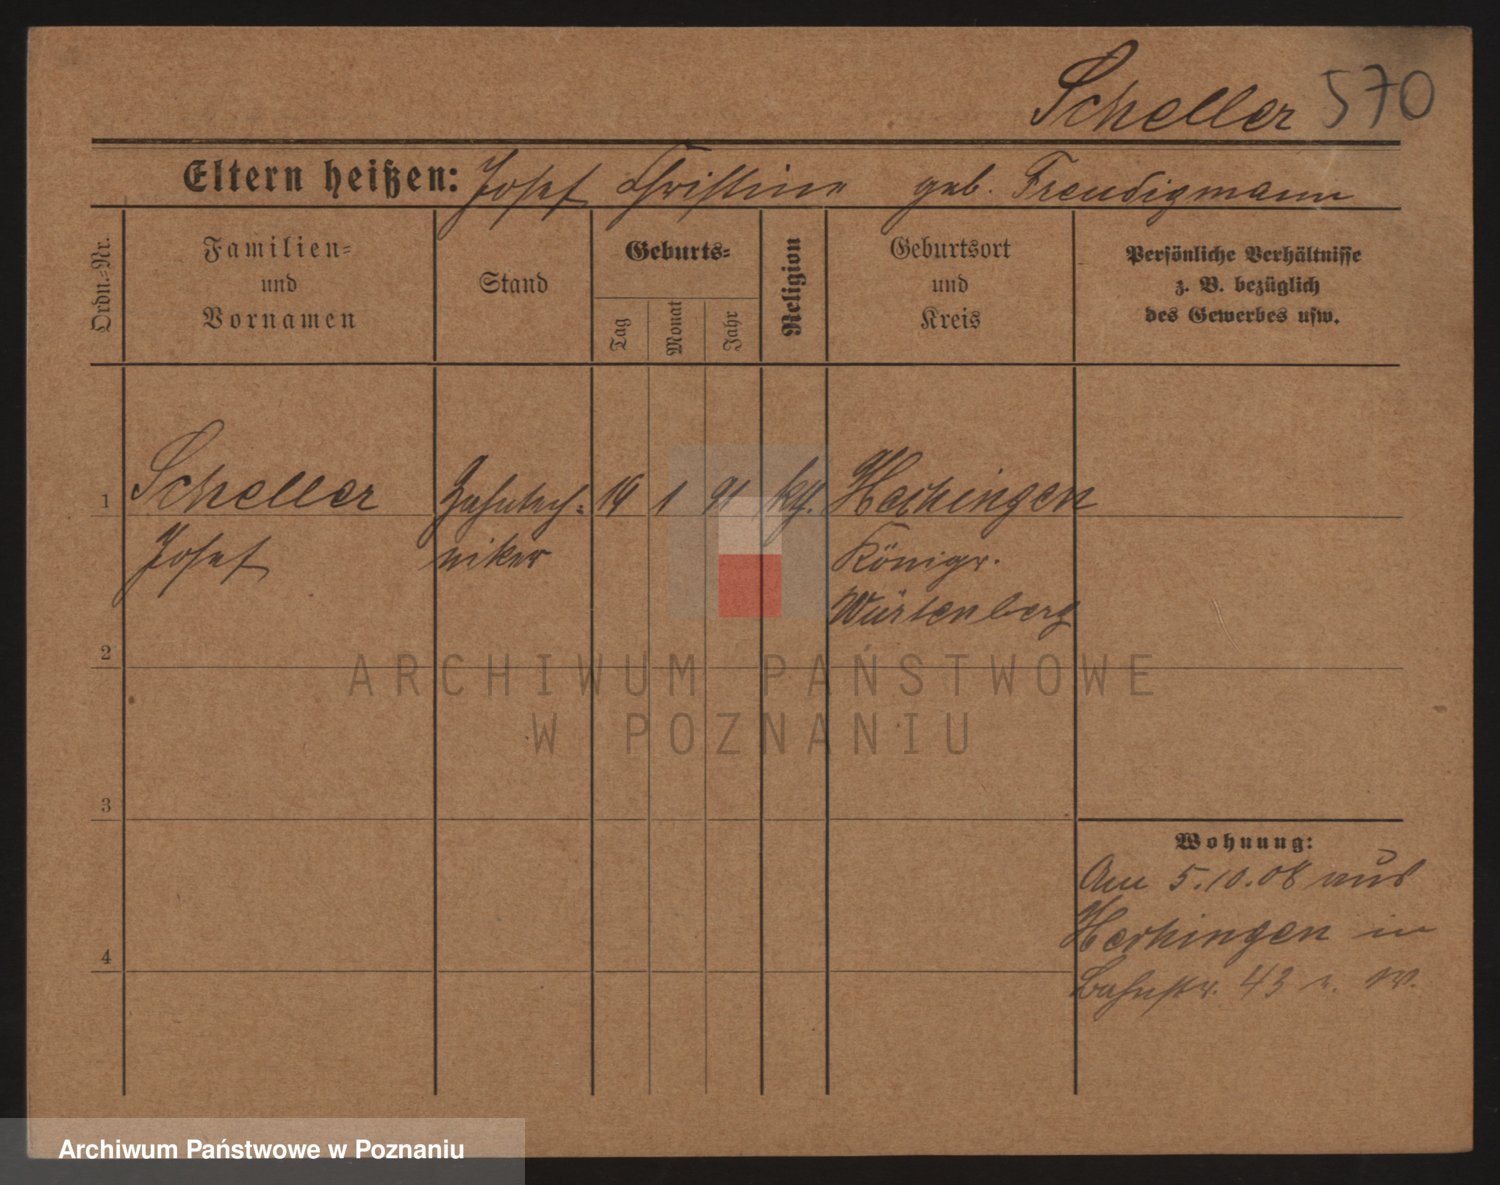 Scheller 570
Eltern heißen: Josef Christine geb. Freudigmann
Ordn.-Nr.
Familien-
und
Vornamen
Stand
Geburts-
Tag
Monat
Jahr
Religion
Geburtsort
und
Kreis
Persönliche Verhältnisse
z. B. bezüglich
des Gewerbes usw.
1 Scheller Zahntech- 19 1 91 kth. Hechingen
Josef niker Königr.
Würtenberg
2
ARCHIWUM PAŃSTWOWE
W POZNANIU
3
Wohnung:
Am 5.10.08 aus
Hechingen in
4
Bahnstr. 43 W.
Archiwum Państwowe w Poznaniu